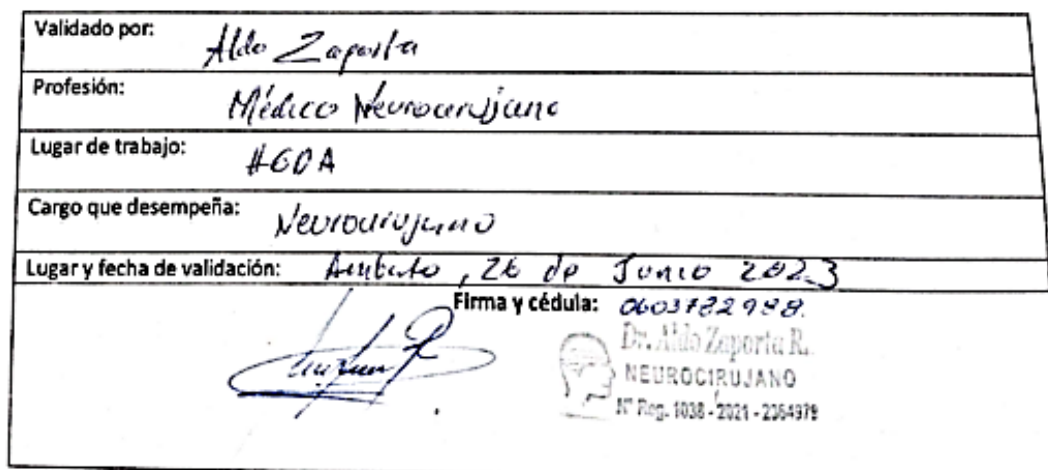 Validado por: Aldo Zaporta
Profesión: Médico Neurocirujano
Lugar de trabajo: HGDA
Cargo que desempeña: Neurocirujano
Lugar y fecha de validación: Ambato, 26 de Junio 2023
Firma y cédula: 0603782988.
Dr. Aldo Zaporta R.
NEUROCIRUJANO
N° Reg. 1038 - 2021 - 2364979